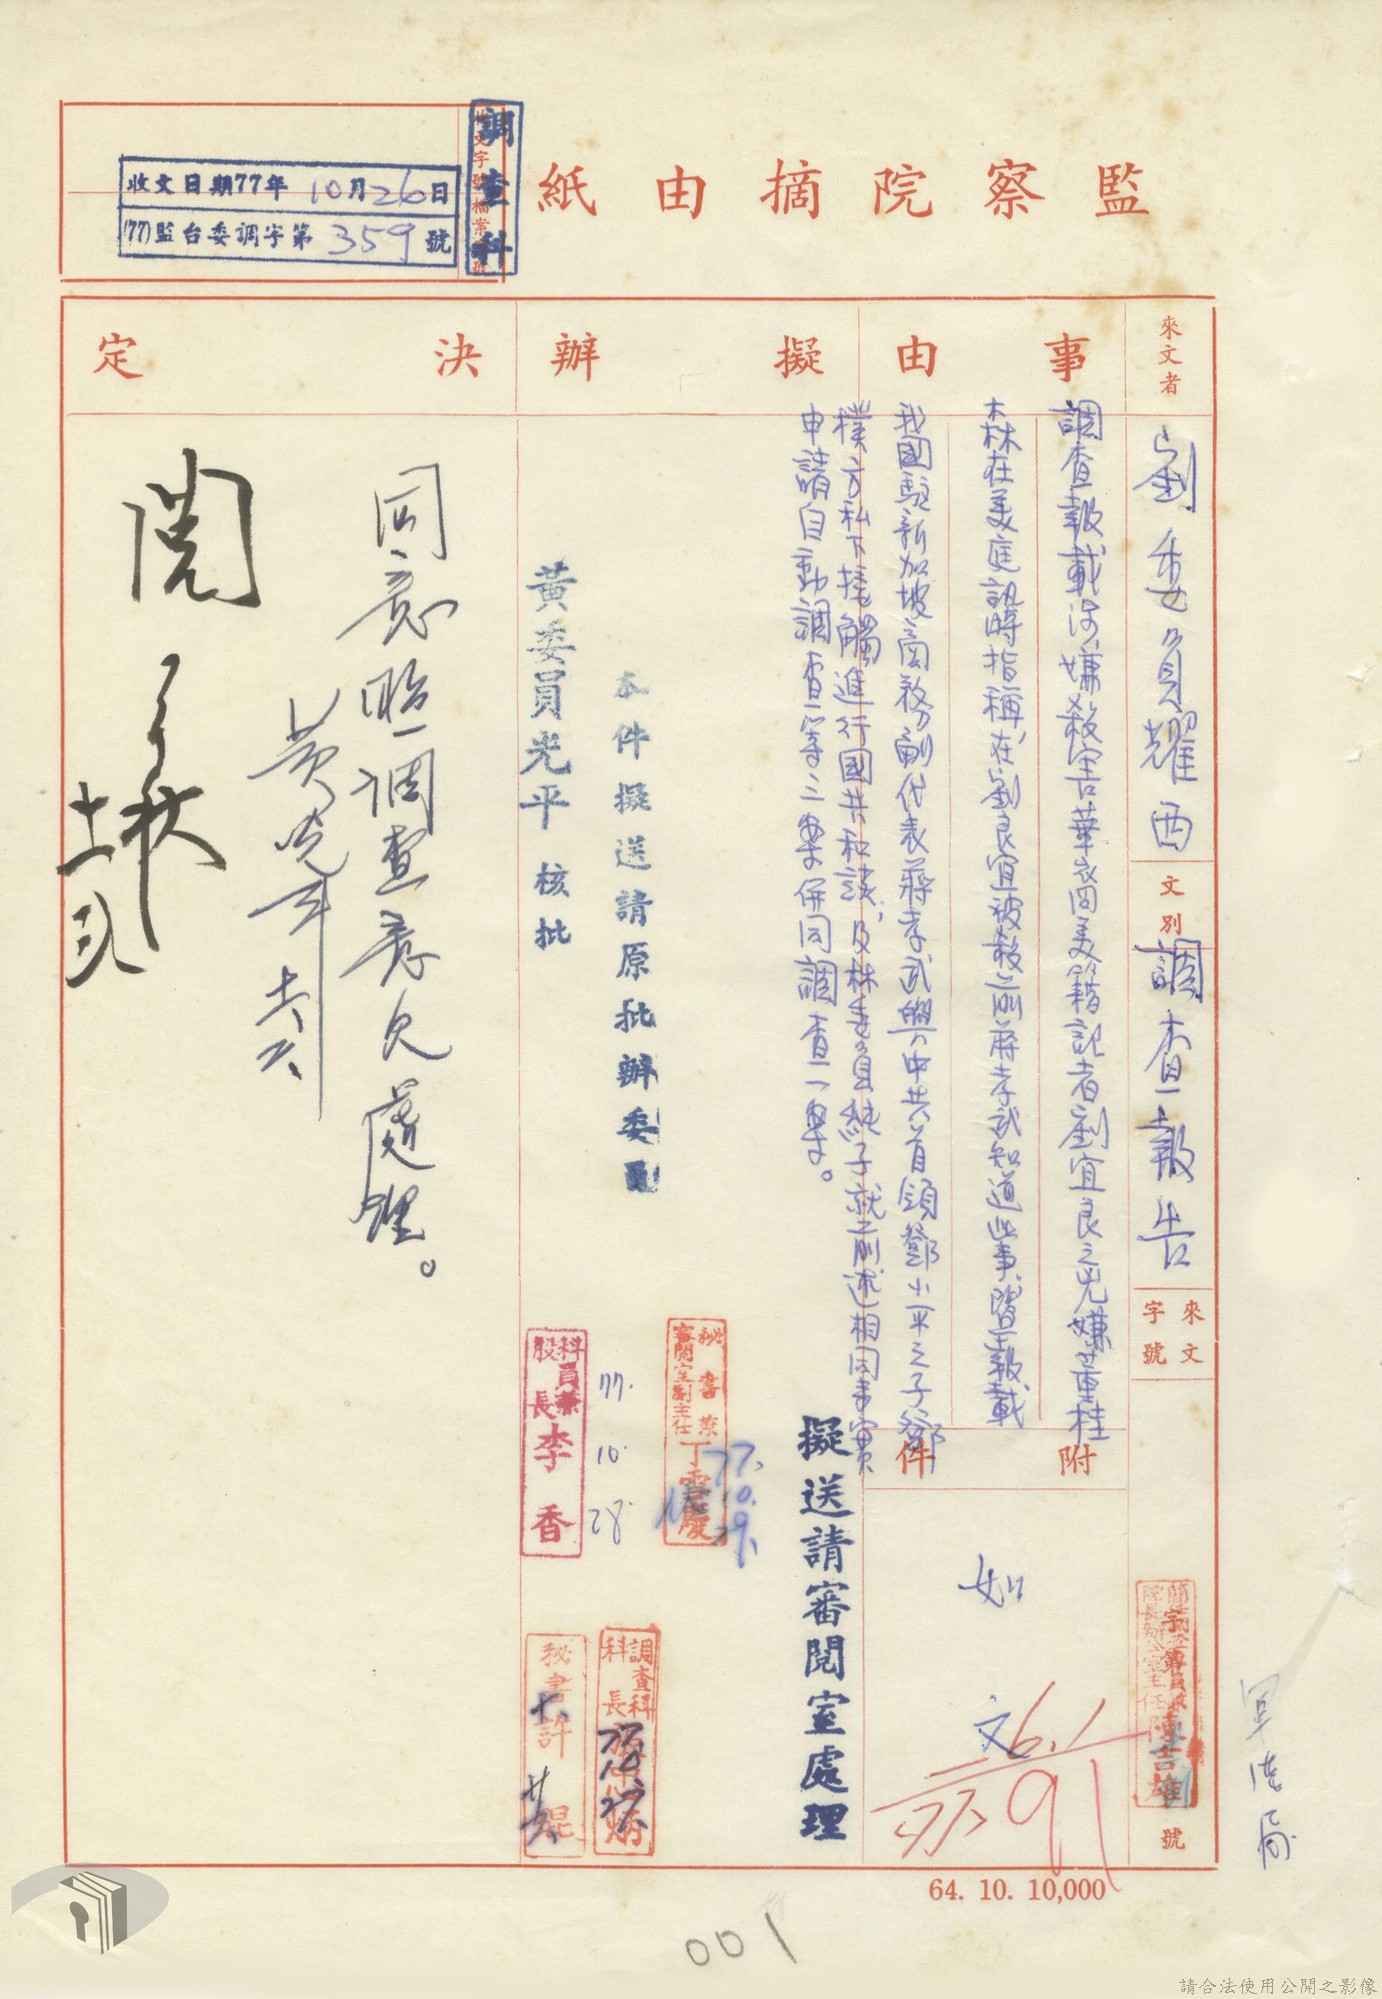 監察院摘由紙
收文字號檔案號
調查科
收文日期77年10月26日
(77)監台委調字第359號
來文者
劉委員耀西
文別
調查報告
來文字號
號
事由
調查報載涉嫌殺害華裔美籍記者劉宜良之兇嫌董桂
森在美庭訊時指稱,在劉良宜被殺前蔣孝武知道此事,暨報載
我國駐新加坡商務副代表蔣孝武與中共首領鄧小平之子鄧
樸方私下接觸進行國共和談,及林委員純子就前述相同事實
申請自動調查等三案併同調查一案。
附件
如文
擬辦
擬送請審閱室處理
本件擬送請原批辦委員
黃委員光平 核批
秘書兼審閱室副主任丁慶
77.10.29.
科員兼股長李香
77.10.28.
調查科科長
77.10.27.
秘書許焜
決定
同意照調查意見處理。
黃光平
閱
64. 10. 10,000
001
請合法使用公開之影像